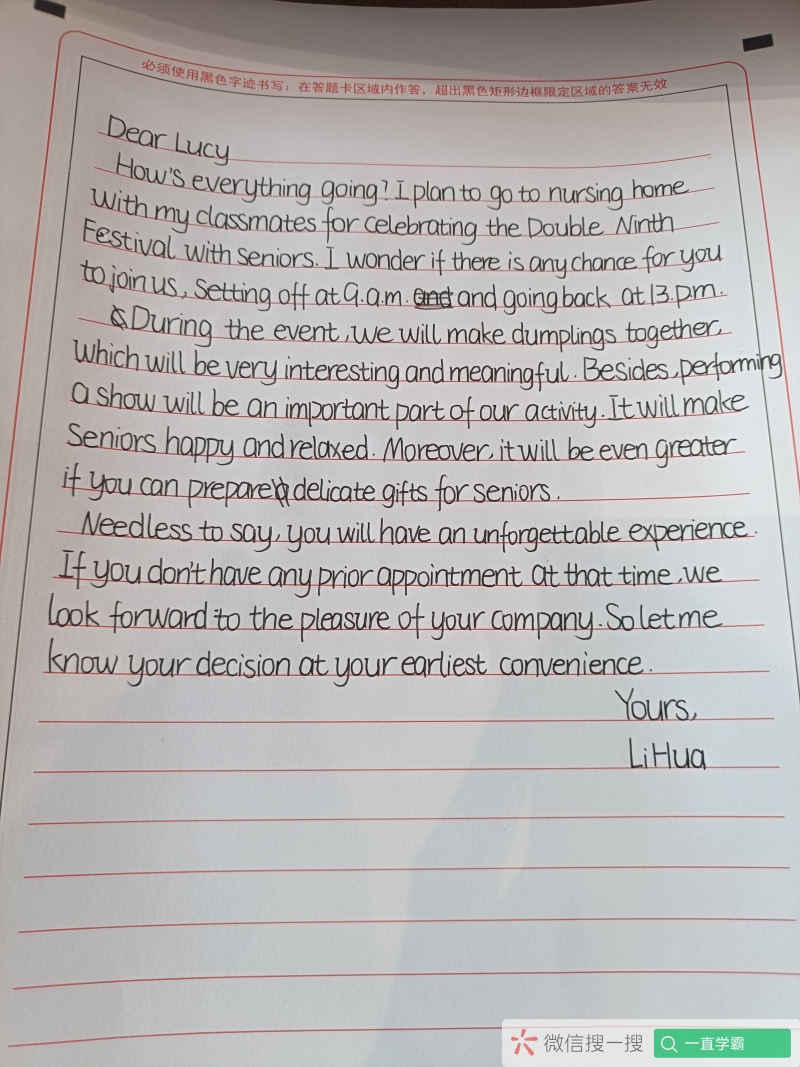 必须使用黑色字迹书写；在答题卡区域内作答，超出黑色矩形边框限定区域的答案无效
Dear Lucy
How's everything going? I plan to go to nursing home
with my classmates for celebrating the Double Ninth
Festival with seniors. I wonder if there is any chance for you
to join us, setting off at 9.a.m. and going back at 13.pm.
During the event, we will make dumplings together,
which will be very interesting and meaningful. Besides, performing
a show will be an important part of our activity. It will make
seniors happy and relaxed. Moreover, it will be even greater
if you can prepare delicate gifts for seniors.
Needless to say, you will have an unforgettable experience.
If you don't have any prior appointment at that time, we
look forward to the pleasure of your company. So let me
know your decision at your earliest convenience.
Yours,
Li Hua
微信搜一搜
一直学霸